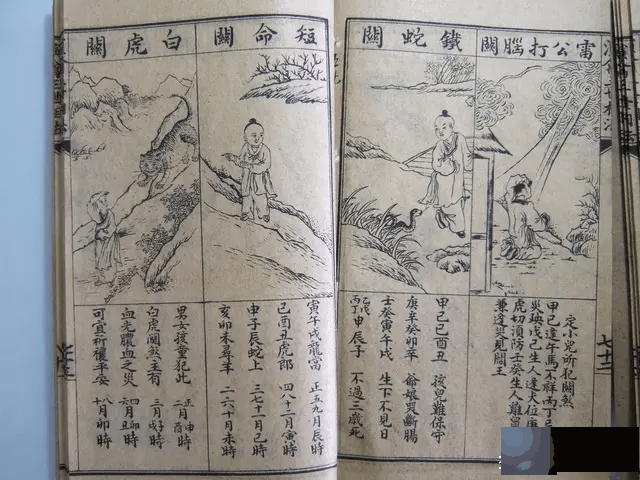 雷公打腦關
定小兒所犯關煞
甲己逢午馬不祥丙丁
災殃戊己生人逢犬位庚
虎切須防壬癸生人難留
兼逢災見閻王
鐵蛇關
甲己巳酉丑 孩兒難保守
庚辛癸卯 爺娘哭斷腸
壬癸寅午戌 生下不見日
丙丁申辰子 不過三歲死
短命關
寅午戌龍當 正五九月辰時
巳酉丑虎鄉 四八十二月寅時
申子辰蛇上 三七十一月巳時
亥卯未尋羊 二六十月未時
白虎關
男女孩童犯此 正月申時 二月酉
白虎關煞主有 三月戌時
血光膿血之災 四月
可宜祈禳平安 八月卯時